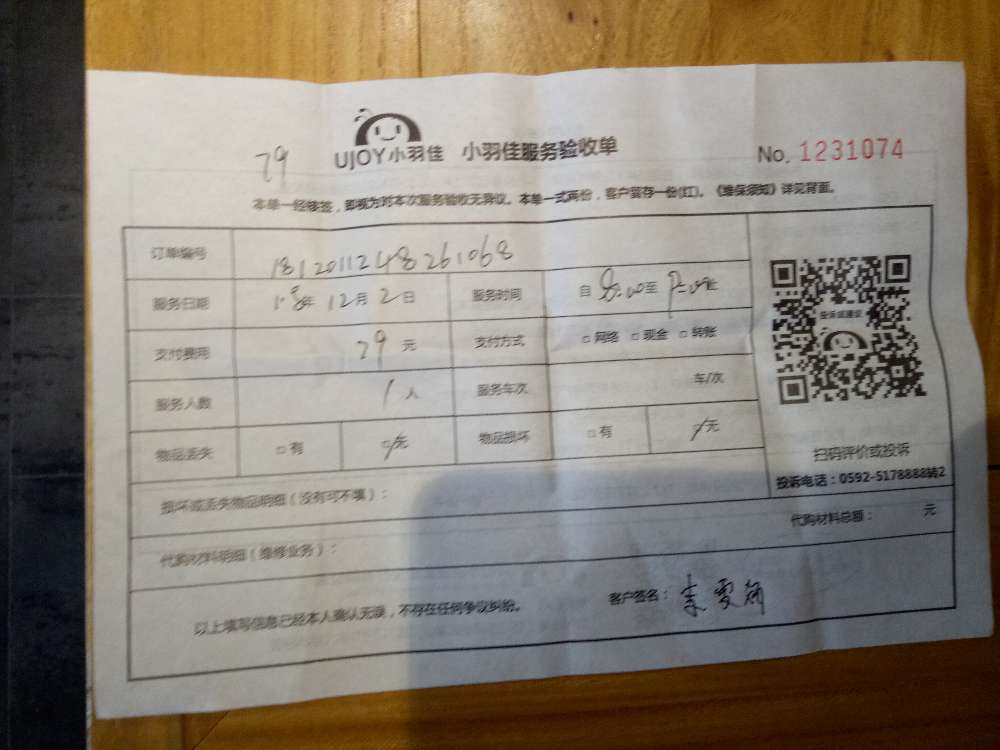 79
UJOY小羽佳 小羽佳服务验收单 No. 1231074
本单一经移签，即视为对本次服务验收无异议。本单一式两份，客户留存一份(红)。《维保须知》详见背面。
订单编号 1812011248261068
服务日期 18年 12月 2日 服务时间 自 8:00至 9:00止
支付费用 29 元 支付方式 □网络 □现金 □转账
服务人数 1人 服务车次 车/次
物品丢失 □有 □无 物品损坏 □有 □无
投诉或建议
扫码评价或投诉
投诉电话：0592-5178888转2
损坏或丢失物品明细（没有可不填）：
代购材料明细（维修业务）： 代购材料总额： 元
以上填写信息已经本人确认无误，不存在任何争议纠纷。 客户签名：